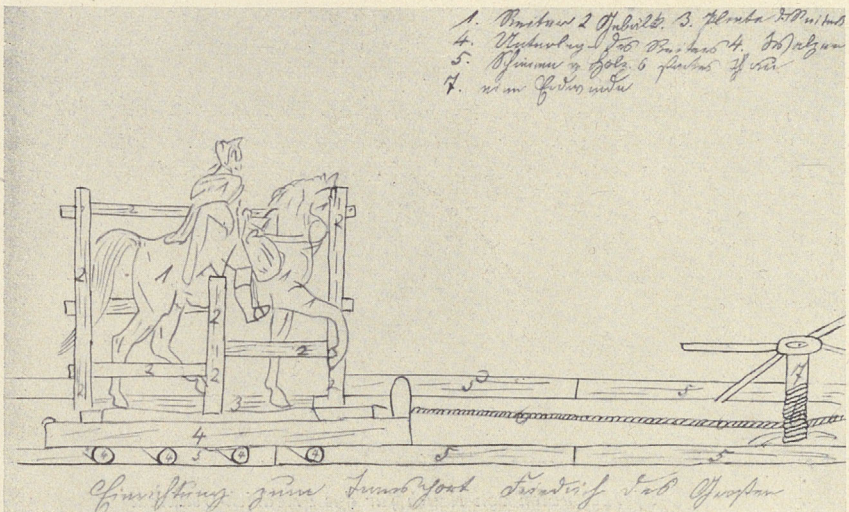 1. Reiter 2 Gebälk. 3. Plinte d. Reiters
4. Unterlage des Reiters 4. Walzen
5. Schienen v Holz. 6 starkes Tau
7. eine Erdwinde
2
2
2
1
2
1
2
2
2
2
2
3
4
4
4
5
4
4
5
5
5
5
6
7
Einrichtung zum Transport Friedrich des Großen